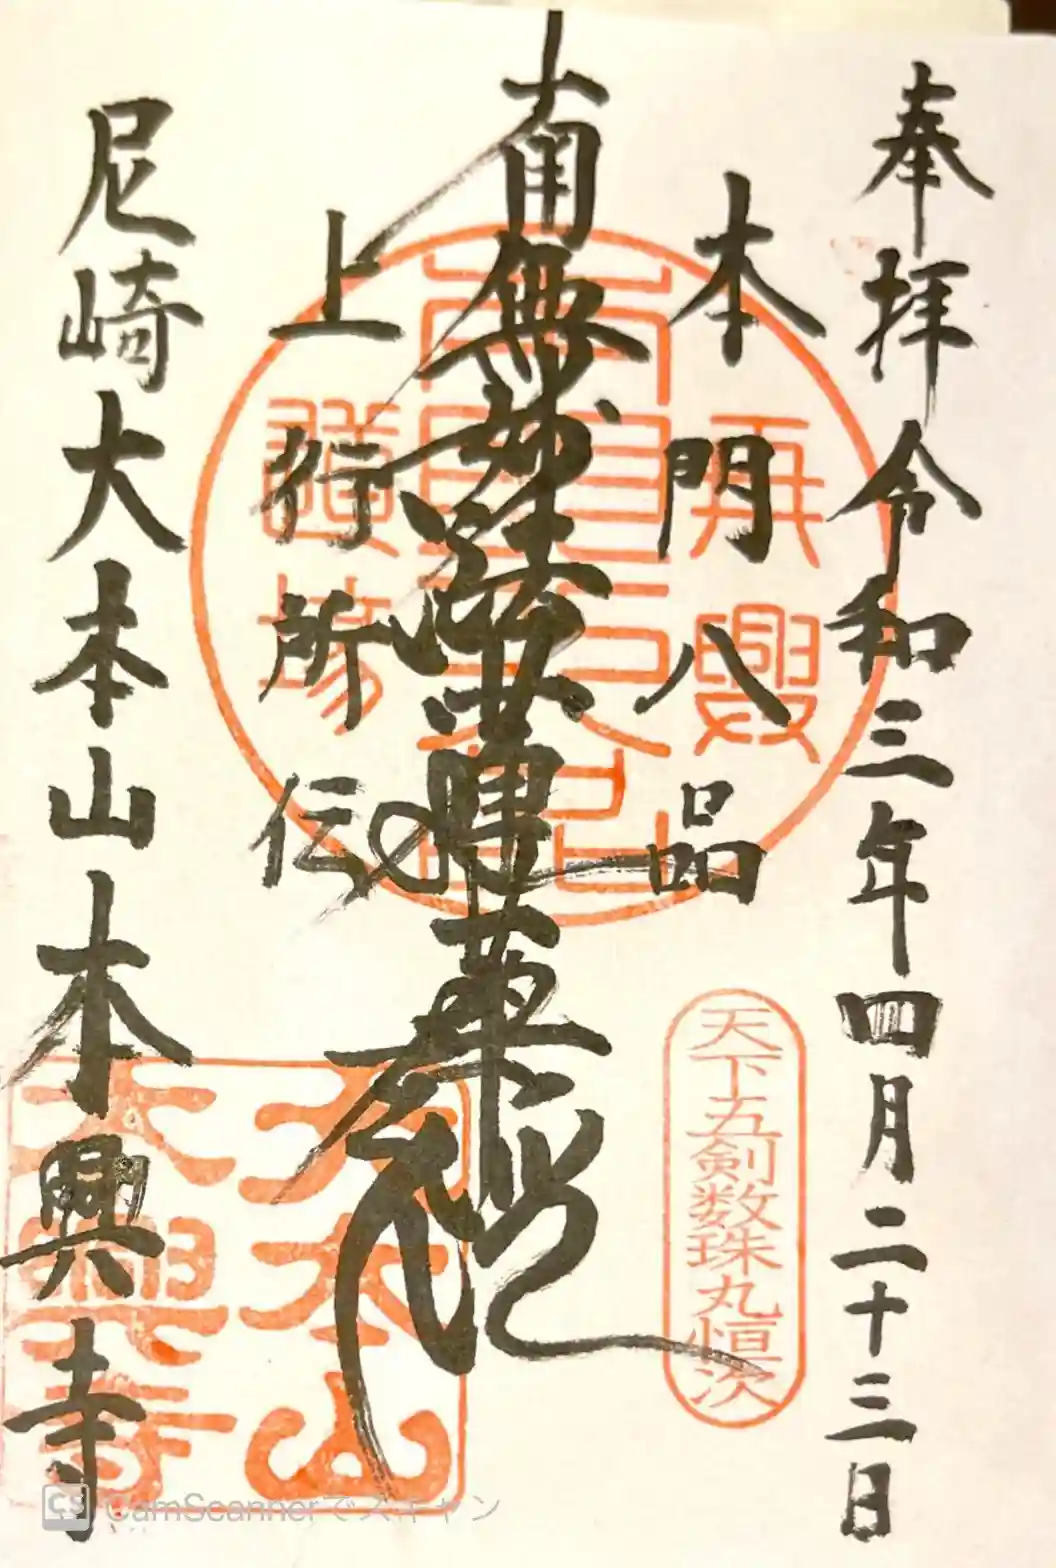 奉拝 令和三年四月二十三日
本門八品
南無妙法蓮華経
上行所伝
尼崎大本山本興寺
再興
道場
天下五剣数珠丸恒次
大本山
本興寺
CS CamScannerでスキャン